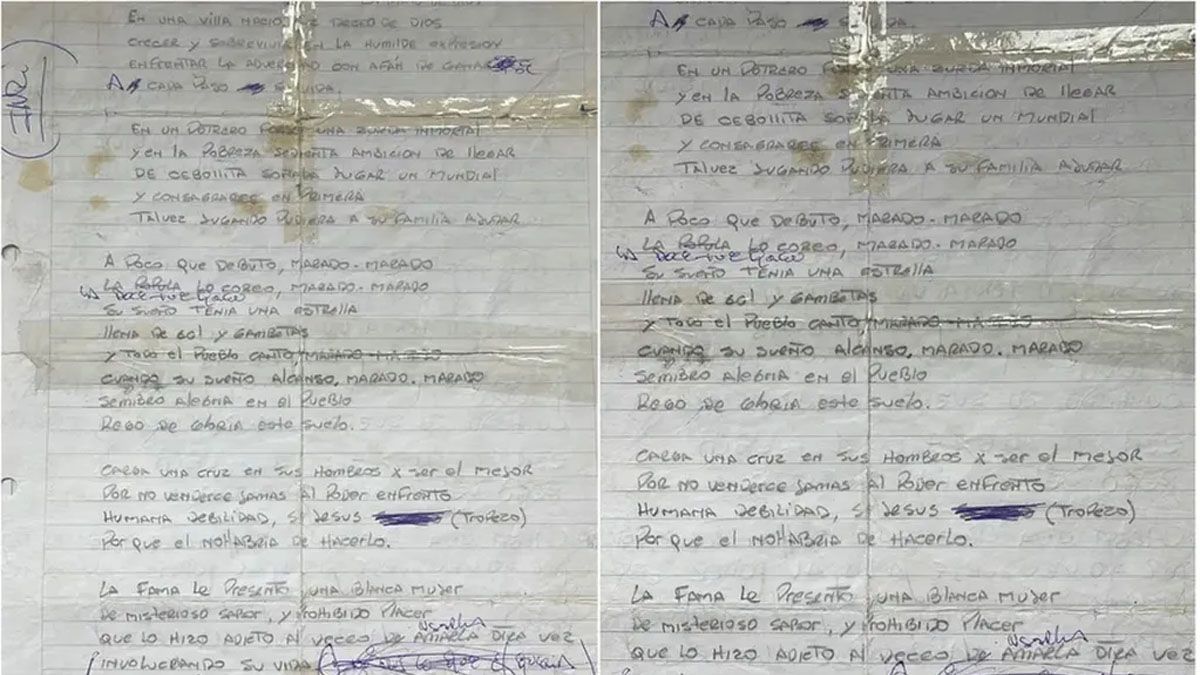 EN UNA VILLA NACIO, DESEO DE DIOS
CRECER Y SOBREVIVIR EN LA HUMILDE EXPRESION
ENFRENTAR LA ADVERSIDAD CON AFÁN DE GANARSE
A CADA PASO SU VIDA.
EN UN POTRERO FORJO UNA ZURDA INMORTAL
Y EN LA POBREZA SEDIENTA AMBICION DE LLEGAR
DE CEBOLLITA SOÑABA JUGAR UN MUNDIAL
Y CONSAGRARSE EN PRIMERA
TALVEZ JUGANDO PUDIERA A SU FAMILIA AYUDAR
A POCO QUE DEBUTO, MARADO-MARADO
LA POPULA LO COREO, MARADO-MARADO
SU SUEÑO TENIA UNA ESTRELLA
LLENA DE GOL Y GAMBETAS
Y TODO EL PUEBLO CANTO MARADO-MARADO
CUANDO SU SUEÑO ALCANSO, MARADO. MARADO
SEMBRO ALEGRIA EN EL PUEBLO
REGO DE GLORIA ESTE SUELO.
CARGA UNA CRUZ EN SUS HOMBROS X SER EL MEJOR
POR NO VENDERCE JAMAS AL PODER ENFRENTO
HUMANA DEBILIDAD, SI JESUS (TROPEZO)
POR QUE EL NO HABRIA DE HACERLO.
LA FAMA LE PRESENTO UNA BLANCA MUJER
DE MISTERIOSO SABOR, Y PROHIBIDO PLACER
QUE LO HIZO ADIETO AL DECEO DE AMARLA OTRA VEZ
INVOLUCRANDO SU VIDA
A CADA PASO SU VIDA.
EN UN POTRERO FORJO UNA ZURDA INMORTAL
Y EN LA POBREZA SEDIENTA AMBICION DE LLEGAR
DE CEBOLLITA SOÑABA JUGAR UN MUNDIAL
Y CONSAGRARSE EN PRIMERA
TALVEZ JUGANDO PUDIERA A SU FAMILIA AYUDAR
A POCO QUE DEBUTO, MARADO-MARADO
LA POPULA LO COREO, MARADO-MARADO
SU SUEÑO TENIA UNA ESTRELLA
LLENA DE GOL Y GAMBETAS
Y TODO EL PUEBLO CANTO MARADO-MARADO
CUANDO SU SUEÑO ALCANSO, MARADO. MARADO
SEMBRO ALEGRIA EN EL PUEBLO
REGO DE GLORIA ESTE SUELO.
CARGA UNA CRUZ EN SUS HOMBROS X SER EL MEJOR
POR NO VENDERCE JAMAS AL PODER ENFRENTO
HUMANA DEBILIDAD, SI JESUS (TROPEZO)
POR QUE EL NO HABRIA DE HACERLO.
LA FAMA LE PRESENTO UNA BLANCA MUJER
DE MISTERIOSO SABOR, Y PROHIBIDO PLACER
QUE LO HIZO ADIETO AL DECEO DE AMARLA OTRA VEZ